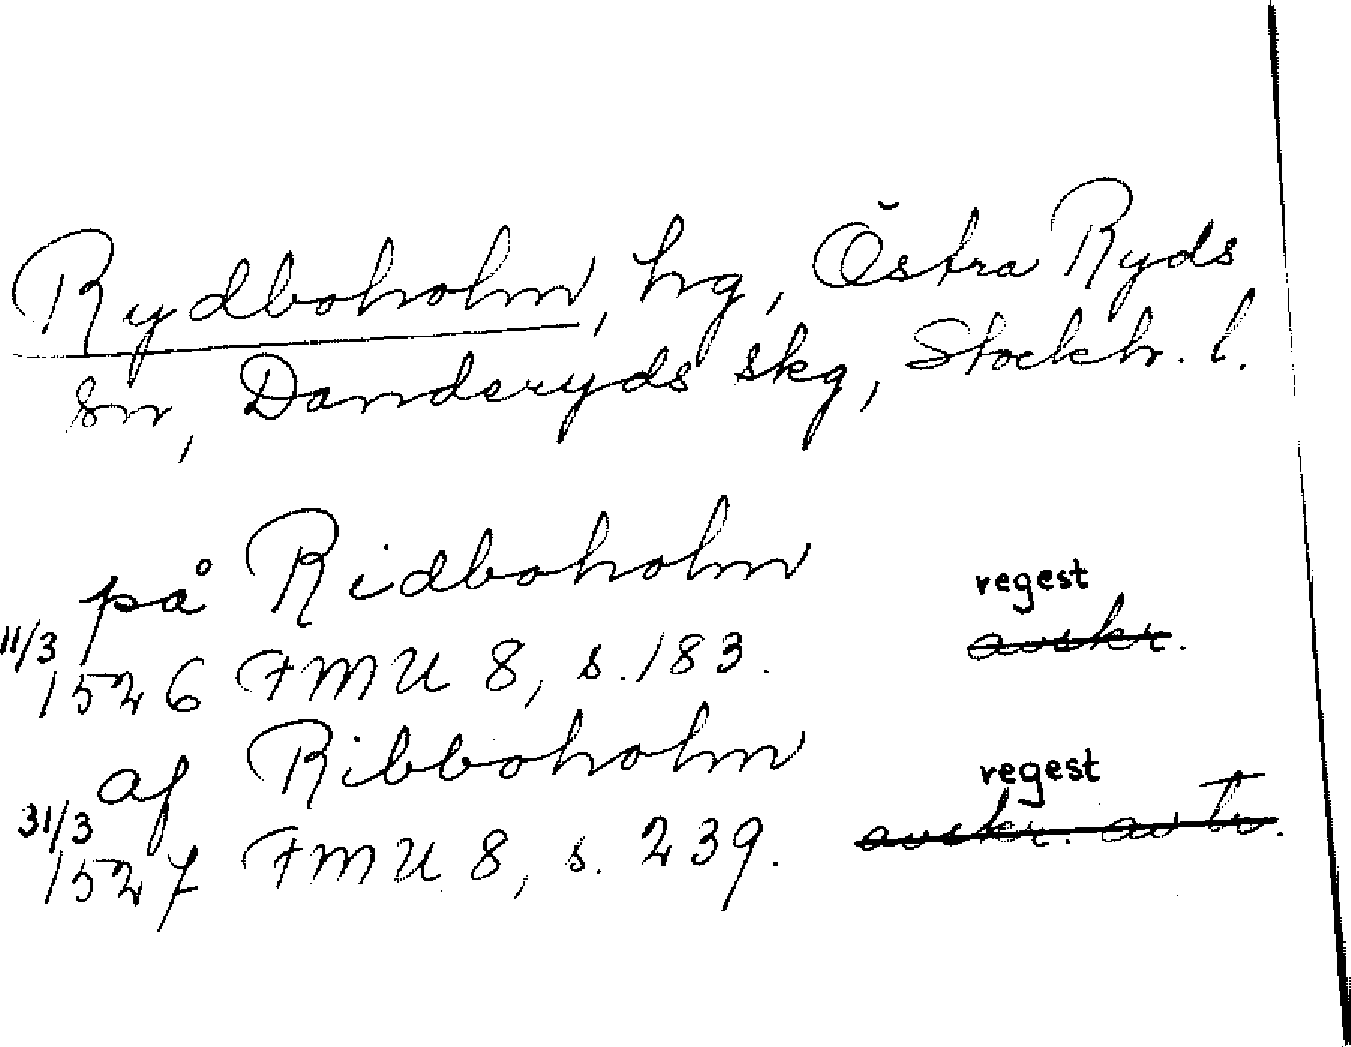 Rydboholm, hg, Östra Ryds
sn, Danderyds skg, Stockh. l.
på Ridboholm regest
11/3 1526 FMU 8, s. 183. avskr.
af Ribboholm regest
31/3 1527 FMU 8, s. 239. avskr. av Tr.